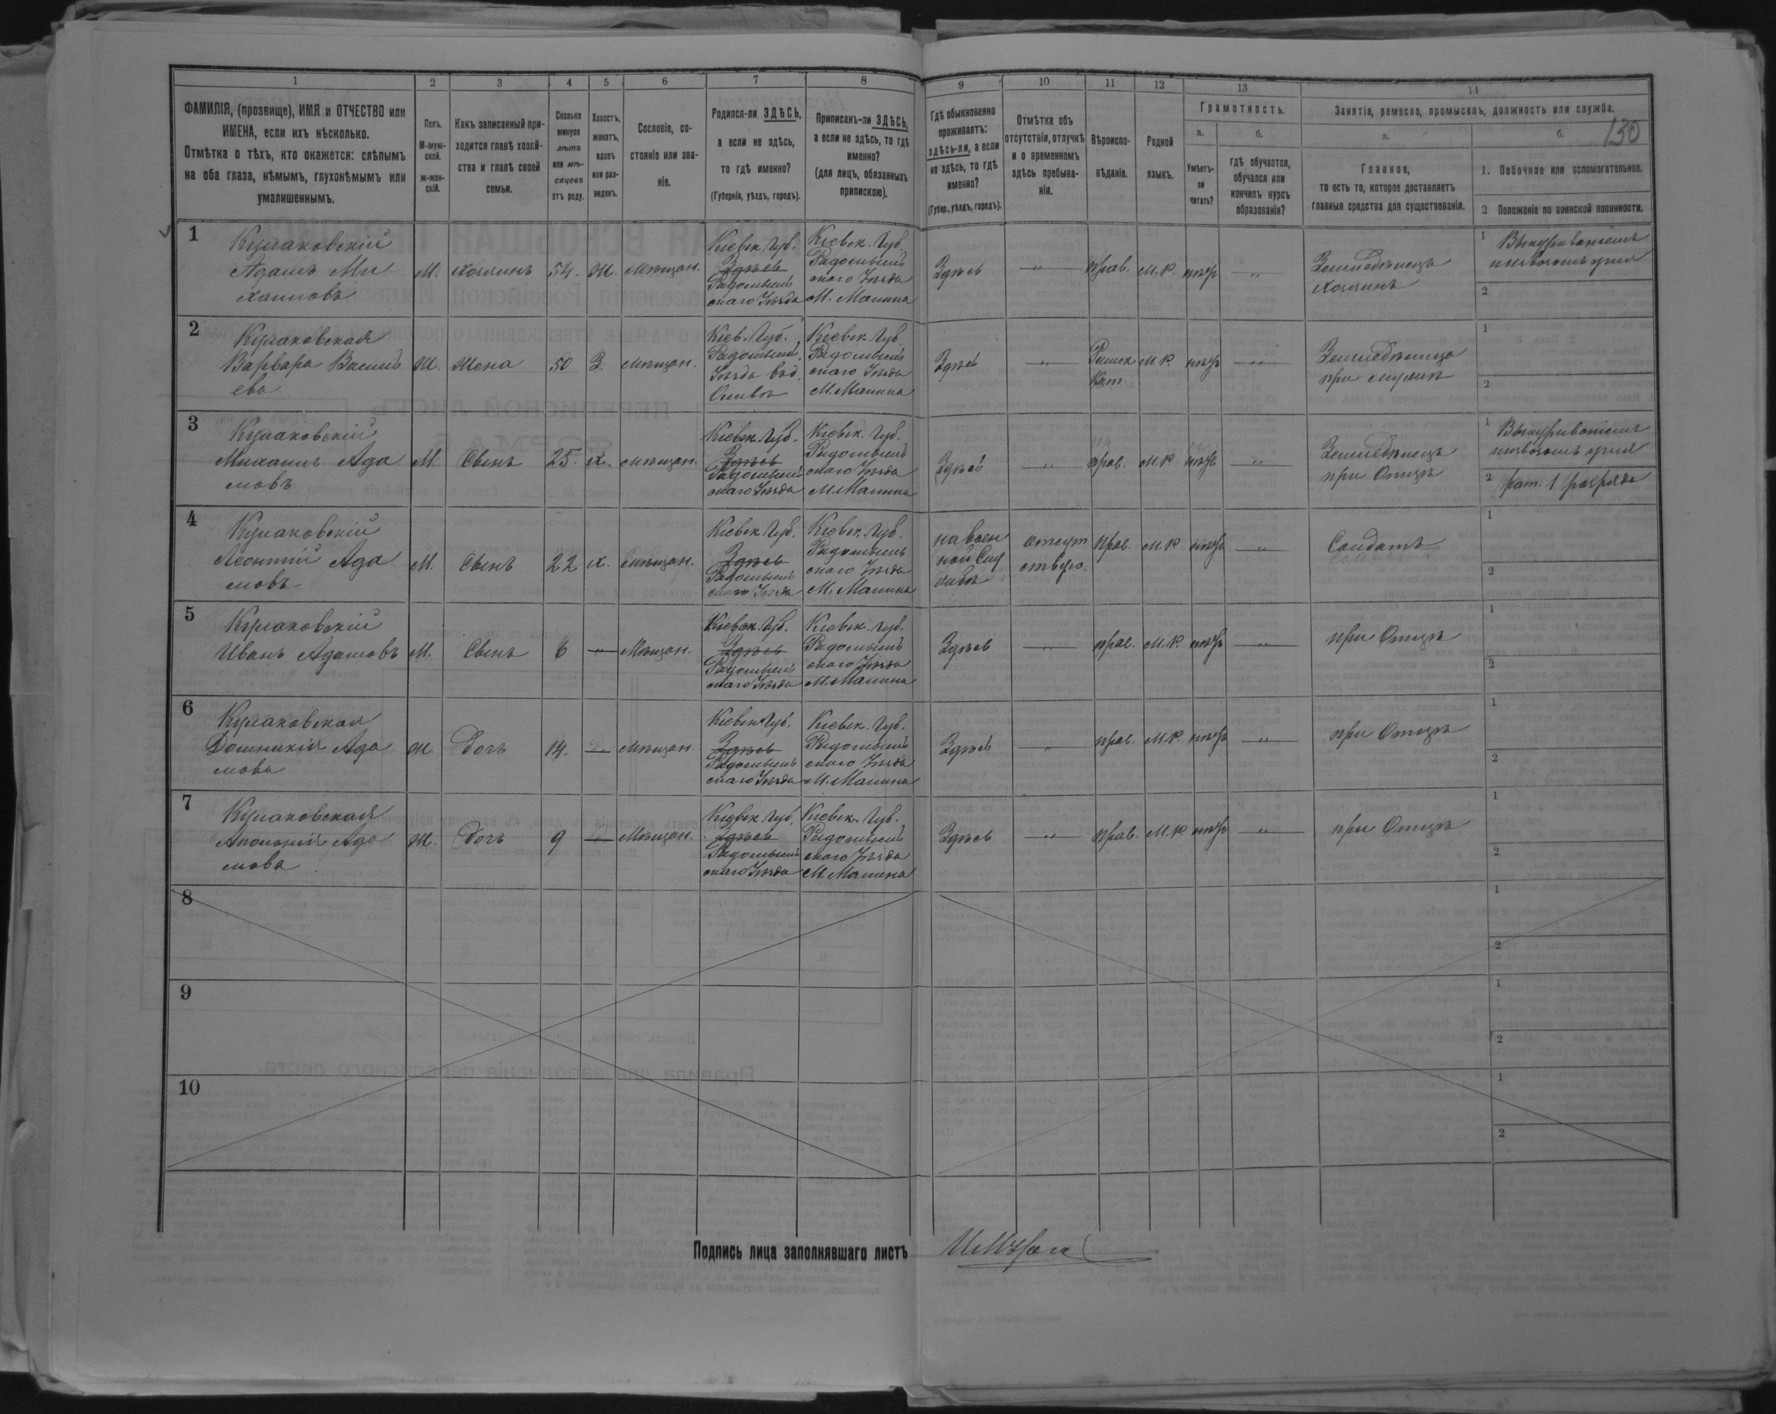 130
1 2 3 4 5 6 7 8 9 10 11 12 13 14
ФАМИЛІЯ, (прозвище), ИМЯ и ОТЧЕСТВО или
ИМЕНА, если ихъ нѣсколько.
Отмѣтка о тѣхъ, кто окажется: слѣпымъ
на оба глаза, нѣмымъ, глухонѣмымъ или
умалишеннымъ.
Полъ.
М-муж-
ской.
ж-жен-
скій.
Какъ записанный при-
ходится главѣ хозяй-
ства и главѣ своей
семьи.
Сколько
минуло
лѣтъ
или мѣ-
сяцевъ
отъ роду.
Холостъ,
женатъ,
вдовъ
или раз-
веденъ.
Сословіе, со-
стояніе или зва-
ніе.
Родился-ли ЗДѢСЬ,
а если не здѣсь,
то гдѣ именно?
(Губернія, уѣздъ, городъ).
Приписанъ-ли ЗДѢСЬ,
а если не здѣсь, то гдѣ
именно?
(для лицъ, обязанныхъ
припискою).
Гдѣ обыкновенно
проживаетъ:
здѣсь-ли, а если
не здѣсь, то гдѣ
именно?
(Губер., уѣздъ, городъ).
Отмѣтка объ
отсутствіи, отлучкѣ
и о временномъ
здѣсь пребыва-
ніи.
Вѣроиспо-
вѣданіе.
Родной
языкъ.
Грамотность.
а.
Умѣетъ-
ли
читать?
б.
гдѣ обучается,
обучался или
кончилъ курсъ
образованія?
Занятіе, ремесло, промыселъ, должность или служба.
а.
Главное,
то есть то, которое доставляетъ
главныя средства для существованія.
б.
1. Побочное или вспомогательное.
2 Положеніе по воинской повинности.
1
Кулаковскій
Адамъ Ми
хаиловъ
М. хозяинъ 54. Ж. мѣщан.
Кіевск. Губ.
Здѣсь
Радомысль
скаго Уѣзда
Кіевск. Губ.
Радомысль
скаго Уѣзда
М. Малина
Здѣсь -"- прав. М.Р. нѣтъ -"-
Земледѣлецъ
хозяинъ
1
2
2
Кулаковская
Варвара Василь
ева
Ж. Жена 50 З. мѣщан.
Кіев. Губ.
Радомысль.
Уѣзда
Кіевск. Губ
Радомысль
скаго Уѣзда
М. Малина
Здѣсь -"- Римск
Кат. М Р. нѣтъ -"-
Земледѣлица
при мужѣ
1
2
3
Кулаковскій
Михаилъ Ада
мовъ
М. Сынъ 25. х. мѣщан.
Кіевск. Губ.
Здѣсь
Радомысль
скаго Уѣзда
Кіевск. Губ.
Радомысль
скаго Уѣзда
М. Малина
Здѣсь -"- прав. М.Р. нѣтъ -"-
Земледѣлецъ
при Отцѣ
1
2 рат. 1 разряда
4
Кулаковскій
Леонтій Ада
мовъ
М. Сынъ 22 х. мѣщан.
Кіевск. Губ.
Здѣсь
Радомысль
скаго Уѣзда
Кіевск. Губ.
Радомысль
скаго Уѣзда
М. Малина
на воен
ной Слу
жбѣ
отсут
ствуго
прав. М.Р нѣтъ -"-
Солдатъ
1
2
5
Кулаковскій
Иванъ Адамовъ
М. Сынъ 6 -"- Мѣщан.
Кіевск. Губ.
Здѣсь
Радомысль
скаго Уѣзда
Кіевск. Губ.
Радомысль
скаго Уѣзда
М. Малина
Здѣсь -"- прав. М.Р. нѣтъ -"-
при Отцѣ
1
2
6
Кулаковская
Домникія Ада
мова
Ж Дочь 14. -"- Мѣщан
Кіевск Губ.
Здѣсь
Радомысль
скаго Уѣзда
Кіевск. Губ.
Радомысль
скаго Уѣзда
М. Малина
Здѣсь -"- прав. М.Р. нѣтъ -"-
при Отцѣ
1
2
7
Кулаковская
Аполонія Ада
мова
Ж. Дочь 9 -"- Мѣщан.
Кіевск. Губ.
Здѣсь
Радомысль
скаго Уѣзда
Кіевск. Губ.
Радомысль
скаго Уѣзда
М Малина
Здѣсь -"- прав. М.Р нѣтъ -"-
при Отцѣ
1
2
8
1
2
9
1
2
10
1
2
Подпись лица заполнявшаго листъ